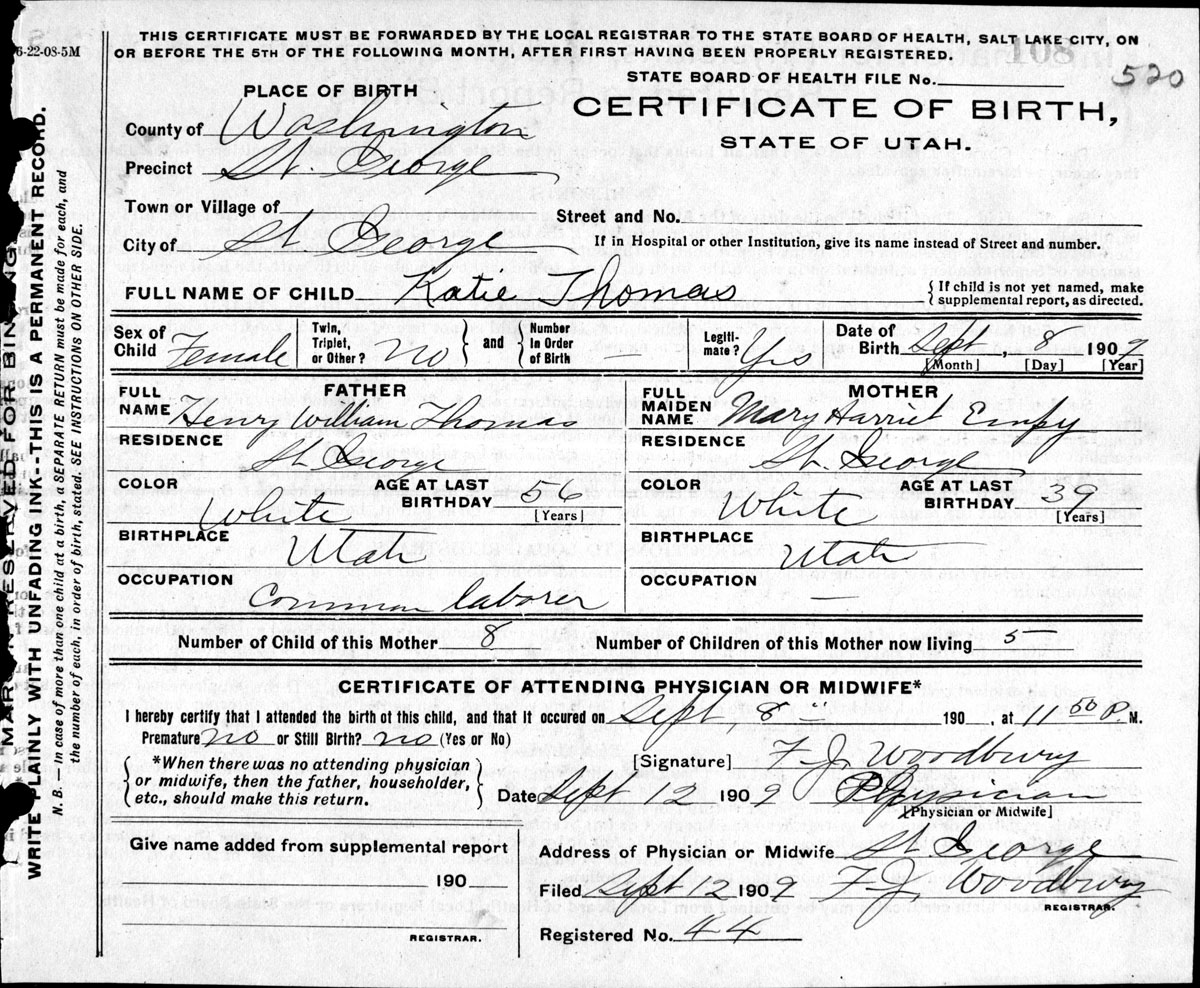 6-22-08-5M
THIS CERTIFICATE MUST BE FORWARDED BY THE LOCAL REGISTRAR TO THE STATE BOARD OF HEALTH, SALT LAKE CITY, ON
OR BEFORE THE 5TH OF THE FOLLOWING MONTH, AFTER FIRST HAVING BEEN PROPERLY REGISTERED.
108
STATE BOARD OF HEALTH FILE No.
520
PLACE OF BIRTH
CERTIFICATE OF BIRTH,
STATE OF UTAH.
County of Washington
Precinct St. George
Town or Village of
Street and No.
City of St. George
If in Hospital or other Institution, give its name instead of Street and number.
FULL NAME OF CHILD Katie Thomas
{ If child is not yet named, make
supplemental report, as directed.
Sex of Child Female
Twin, Triplet, or Other? No } and { Number in Order of Birth —
Legiti-mate? Yes
Date of Birth Sept, 8 1909
[Month] [Day] [Year]
FATHER
FULL NAME Henry William Thomas
RESIDENCE St George
COLOR White
AGE AT LAST BIRTHDAY 56
[Years]
BIRTHPLACE Utah
OCCUPATION Common laborer
MOTHER
FULL MAIDEN NAME Mary Harriet Empy
RESIDENCE St. George
COLOR White
AGE AT LAST BIRTHDAY 39
[Years]
BIRTHPLACE Utah
OCCUPATION —
Number of Child of this Mother 8
Number of Children of this Mother now living 5
CERTIFICATE OF ATTENDING PHYSICIAN OR MIDWIFE*
I hereby certify that I attended the birth of this child, and that it occured on Sept, 8 " 190 , at 11 50 P. M.
Premature no or Still Birth? no (Yes or No)
{ *When there was no attending physician
or midwife, then the father, householder,
etc., should make this return. }
[Signature] F. J. Woodbury
Date Sept 12 1909 Physician
[Physician or Midwife]
Give name added from supplemental report
190
REGISTRAR.
Address of Physician or Midwife St. George
Filed Sept 12 1909 F J. Woodbury
REGISTRAR.
Registered No. 44
MARGIN RESERVED FOR BINDING
WRITE PLAINLY WITH UNFADING INK--THIS IS A PERMANENT RECORD.
N. B. — In case of more than one child at a birth, a SEPARATE RETURN must be made for each, and
the number of each, in order of birth, stated. SEE INSTRUCTIONS ON OTHER SIDE.